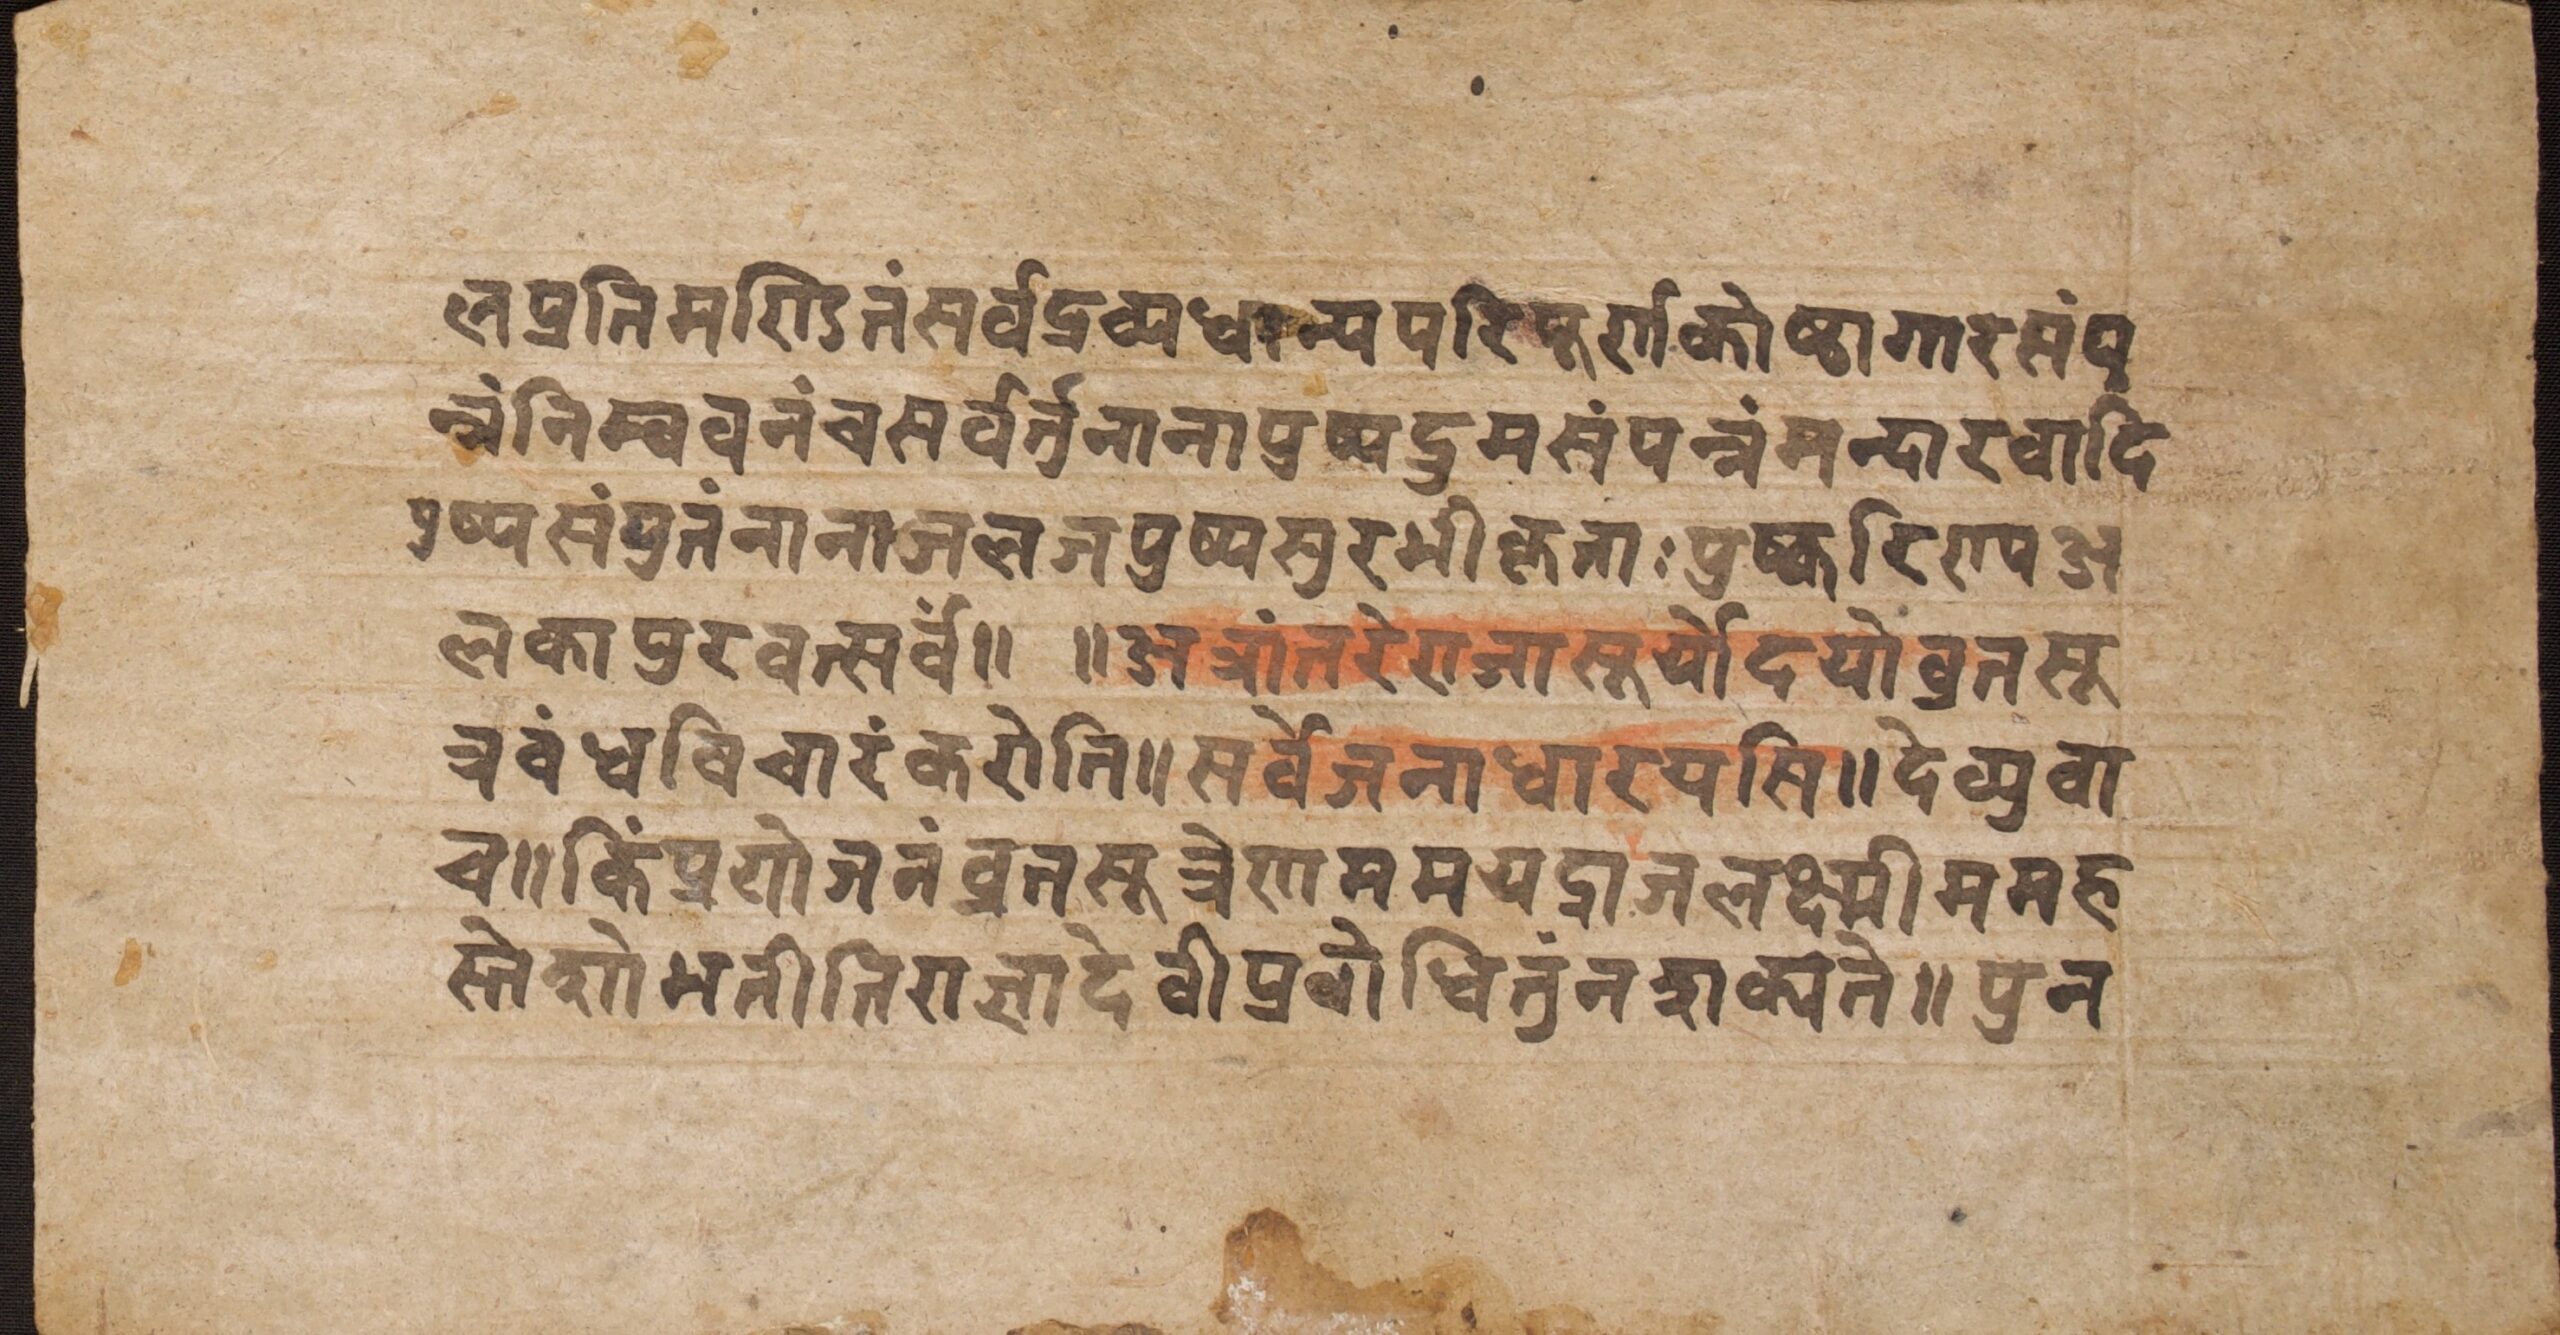 लप्रतिमण्डितंसर्वद्रव्यधान्यपरिपूर्णकोष्ठागारसंप
न्नंनिम्बवनंचसर्वर्तुनानापुष्पद्रुमसंपन्नंमन्दारवादि
पुष्पसंपुतंनानाजलजपुष्पसुरभीकृताःपुष्करिण्यअ
लकापुरवत्सर्वं॥ ॥अत्रांतरेराजासूर्योदयोव्रतसू
त्रबंधविचारंकरोति॥सर्वेजनाधारयसि॥देव्युवा
च॥किंप्रयोजनंव्रतसूत्रेणाममयद्राजलक्ष्मीममह
स्तेशोभतीतिराज्ञादेवीप्रबोधितुंनशक्यते॥पुन